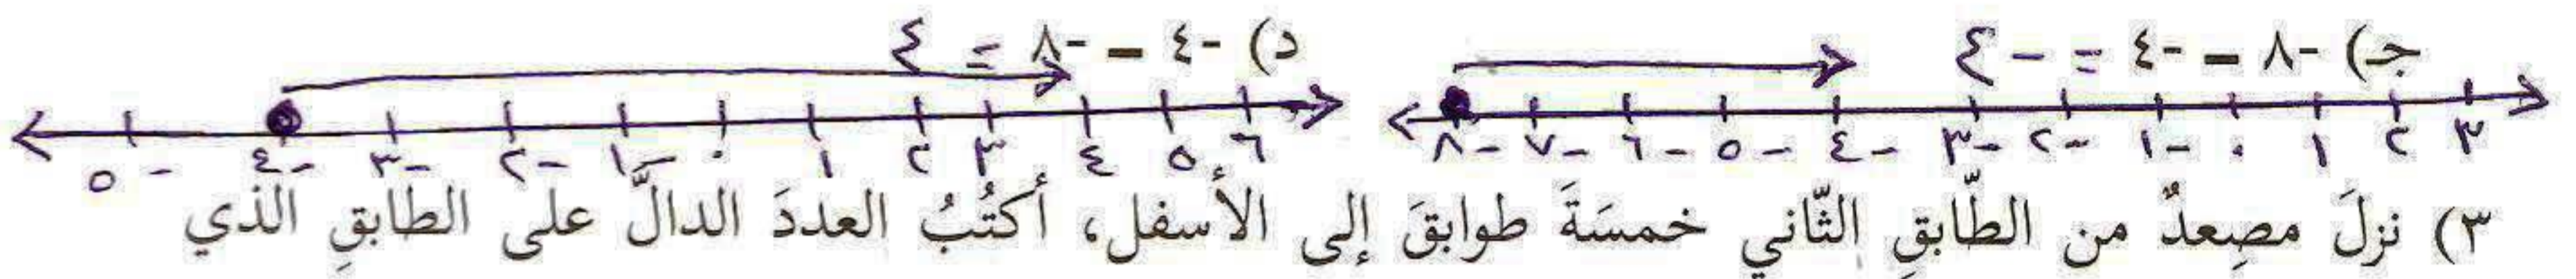 جـ) -٨ - -٤ = -٤
-٨ -٧ -٦ -٥ -٤ -٣ -٢ -١ ٠ ١ ٢ ٣
د) -٤ - -٨ = ٤
-٥ -٤ -٣ -٢ -١ ٠ ١ ٢ ٣ ٤ ٥ ٦
٣) نزلَ مصِعدٌ من الطّابقِ الثّاني خمسَةَ طوابقَ إلى الأسفل، أكتُبُ العددَ الدالَّ على الطابقِ الذي